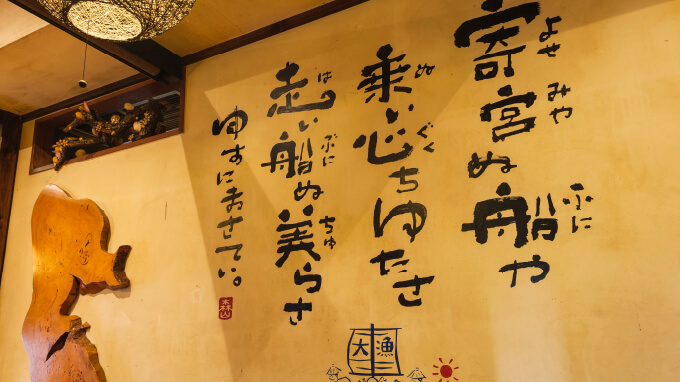 寄宮ぬ船や
よせ みや ふに
乗い心ちゆたさ
ぬ ぐく
走い船ぬ美らさ
は ふに ちゅ
ゆすにまさてぃ。
大漁